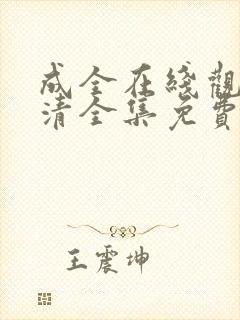 成全在綫觀
清全集免費
王震坤